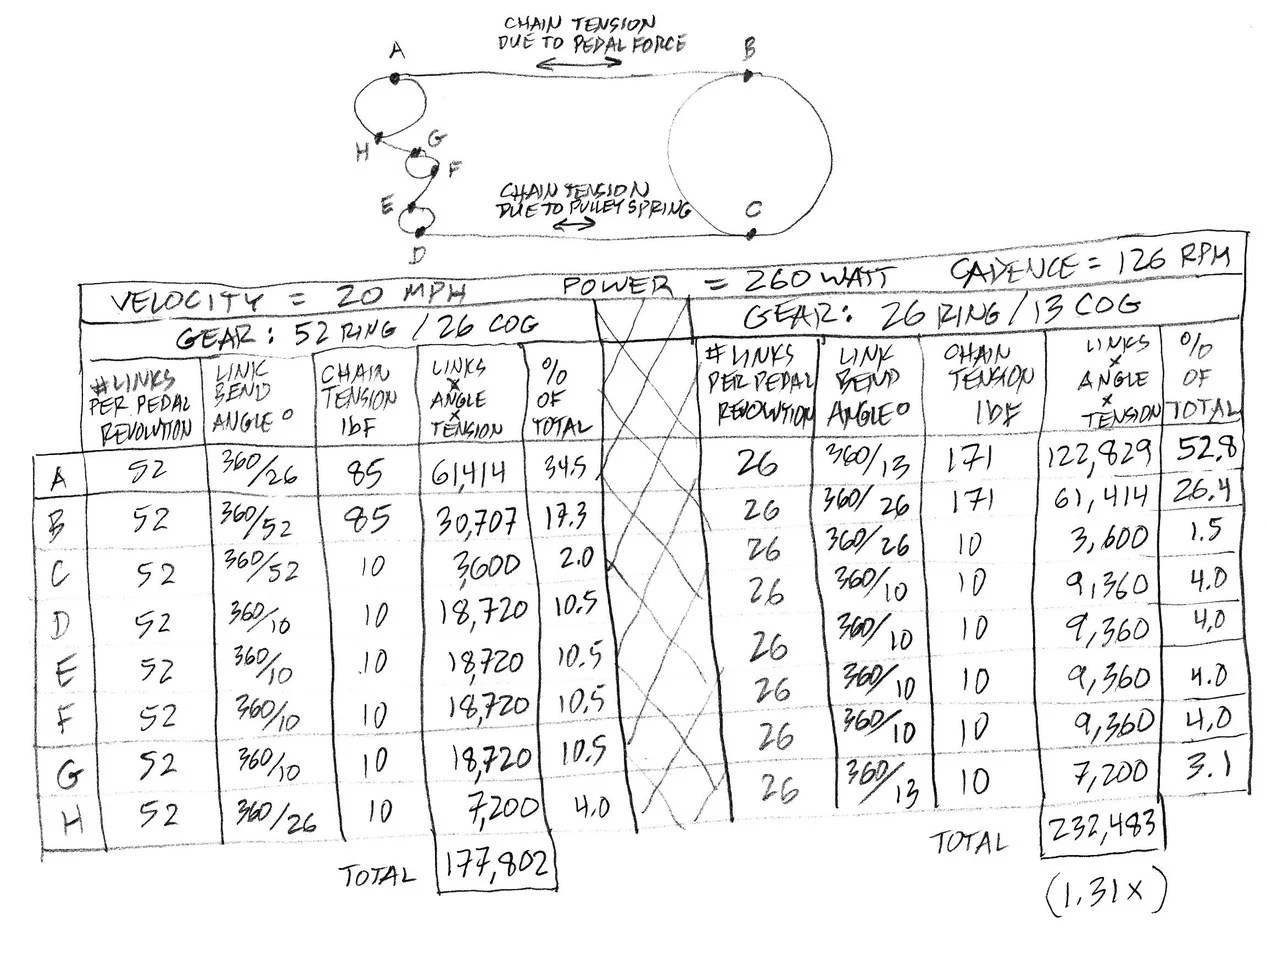 CHAIN TENSION
DUE TO PEDAL FORCE
A
B
H
G
F
E
CHAIN TENSION
DUE TO PULLEY SPRING
C
D
VELOCITY = 20 MPH POWER = 260 WATT CADENCE = 126 RPM
GEAR: 52 RING / 26 COG GEAR: 26 RING / 13 COG
# LINKS PER PEDAL REVOLUTION LINK BEND ANGLE° CHAIN TENSION lbF LINKS x ANGLE x TENSION % OF TOTAL # LINKS PER PEDAL REVOLUTION LINK BEND ANGLE° CHAIN TENSION lbF LINKS x ANGLE x TENSION % OF TOTAL
A 52 360/26 85 61,414 34.5 26 360/13 171 122,829 52.8
B 52 360/52 85 30,707 17.3 26 360/26 171 61,414 26.4
C 52 360/52 10 3,600 2.0 26 360/26 10 3,600 1.5
D 52 360/10 10 18,720 10.5 26 360/10 10 9,360 4.0
E 52 360/10 10 18,720 10.5 26 360/10 10 9,360 4.0
F 52 360/10 10 18,720 10.5 26 360/10 10 9,360 4.0
G 52 360/10 10 18,720 10.5 26 360/10 10 9,360 4.0
H 52 360/26 10 7,200 4.0 26 360/13 10 7,200 3.1
TOTAL 177,802 TOTAL 232,483
(1.31x)